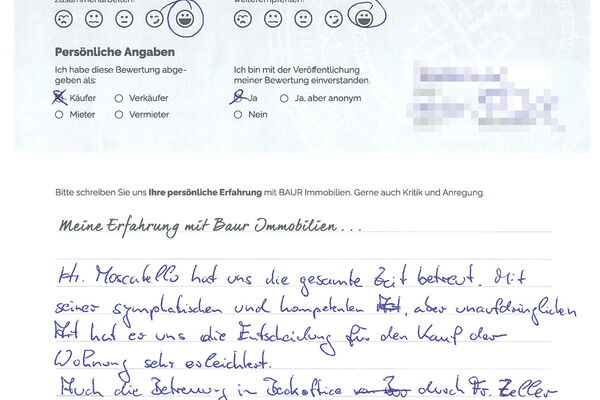 zusammenarbeiten? weiterempfehlen?
Persönliche Angaben
Ich habe diese Bewertung abge-
geben als:
Käufer Verkäufer
Mieter Vermieter
Ich bin mit der Veröffentlichung
meiner Bewertung einverstanden.
Ja Ja, aber anonym
Nein
Bitte schreiben Sie uns Ihre persönliche Erfahrung mit BAUR Immobilien. Gerne auch Kritik und Anregung.
Meine Erfahrung mit Baur Immobilien...
Hr. Moscatello hat uns die gesamte Zeit betreut. Mit
seiner symphatischen und kompetenten Art, aber unaufdringlichen
Art hat er uns die Entscheidung für den Kauf der
Wohnung sehr erleichtert.
Auch die Betreuung in Backoffice durch Fr. Zeller